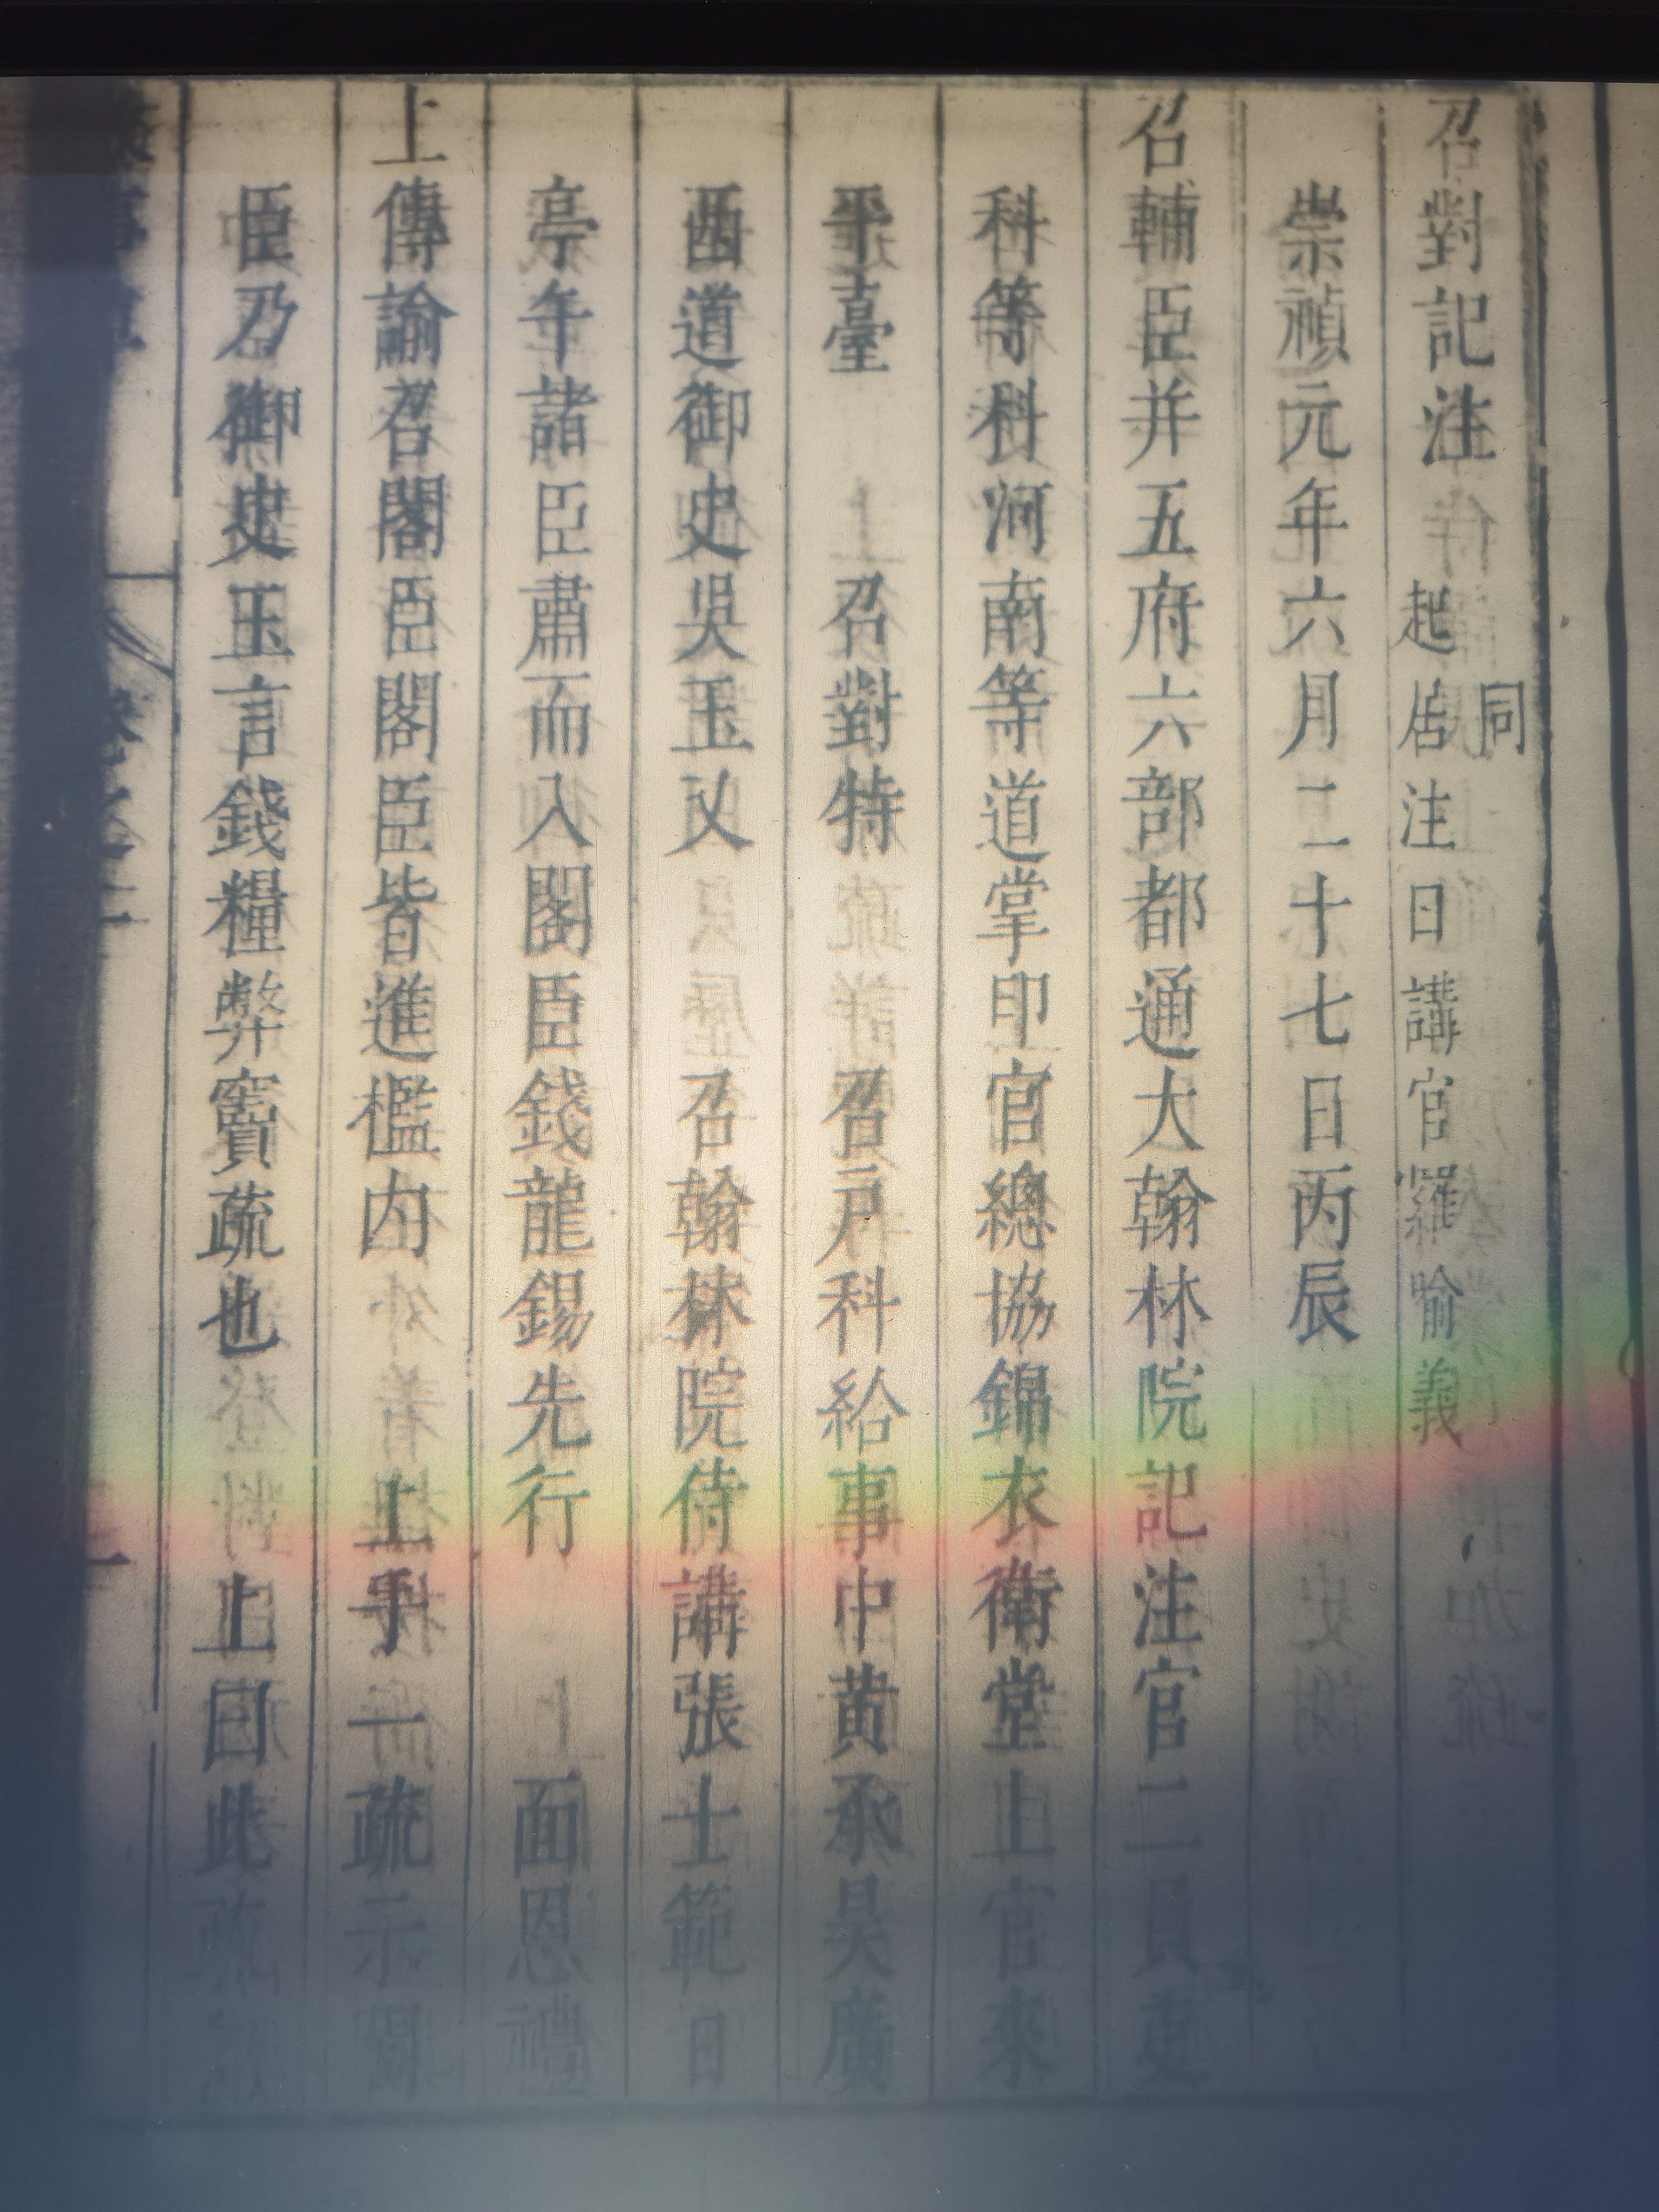 召對記注
同
起居注日講官羅喻義
崇禎元年六月二十七日丙辰
召輔臣并五府六部都通大翰林院記注官二員
科等科河南等道掌印官總協錦衣衛堂上官來
平臺 召對特 召戶科給事中黃承昊廣
西道御史吳玉又 召翰林院侍講張士範日
亭午諸臣肅而入閣臣錢龍錫先行 面恩禮
上傳諭召閣臣閣臣皆進檻內 上手一疏示閣
臣乃御史玉言錢糧弊竇疏也 上曰此疏